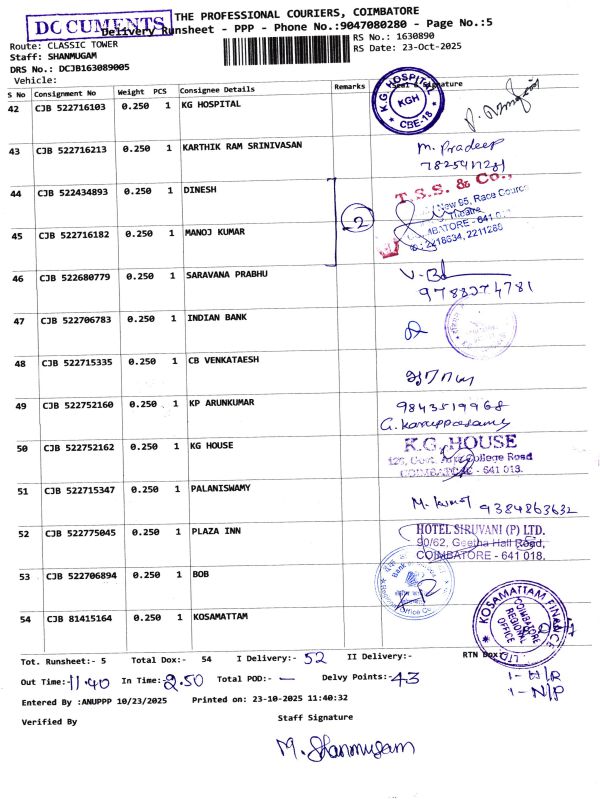 DOCUMENTS
THE PROFESSIONAL COURIERS, COIMBATORE
Delivery Runsheet - PPP - Phone No.:9047080280 - Page No.:5
Route: CLASSIC TOWER
RS No.: 1630890
Staff: SHANMUGAM
RS Date: 23-Oct-2025
DRS No.: DCJB163089005
Vehicle:
S No Consignment No Weight PCS Consignee Details Remarks Seal & Signature
42 CJB 522716103 0.250 1 KG HOSPITAL
K.G. HOSPITAL
KGH
CBE-18
43 CJB 522716213 0.250 1 KARTHIK RAM SRINIVASAN
M. Pradeep
44 CJB 522434893 0.250 1 DINESH
2
T.S.S. & Co.,
New 95, Race Course
Theatre
COIMBATORE - 641
2218634, 2211286
45 CJB 522716182 0.250 1 MANOJ KUMAR
46 CJB 522680779 0.250 1 SARAVANA PRABHU
9788074781
47 CJB 522706783 0.250 1 INDIAN BANK
48 CJB 522715335 0.250 1 CB VENKATAESH
49 CJB 522752160 0.250 1 KP ARUNKUMAR
9843519968
G. Karuppasamy
50 CJB 522752162 0.250 1 KG HOUSE
K.G. HOUSE
Govt. Arts College Road
COIMBATORE - 641 018.
51 CJB 522715347 1 PALANISWAMY 0.250
M. Kumar 9384863632
52 CJB 522775045 0.250 1 PLAZA INN
HOTEL SIRUVANI (P) LTD.
90/62, Geetha Hall Road,
COIMBATORE - 641 018.
53 CJB 522706894 0.250 1 BOB
54 CJB 81415164 0.250 1 KOSAMATTAM
KOSAMATTAM FINANCE LTD.
COIMBATORE
REGIONAL
OFFICE
Tot. Runsheet:- 5 Total Dox:- 54 I Delivery:- 52 II Delivery:- RTN Dox:-
Out Time:- 11.40 In Time:- 2.50 Total POD:- — Delvy Points:- 43
1- N/P
Entered By :ANUPPP 10/23/2025 Printed on: 23-10-2025 11:40:32
Verified By
Staff Signature
M. Shanmugam